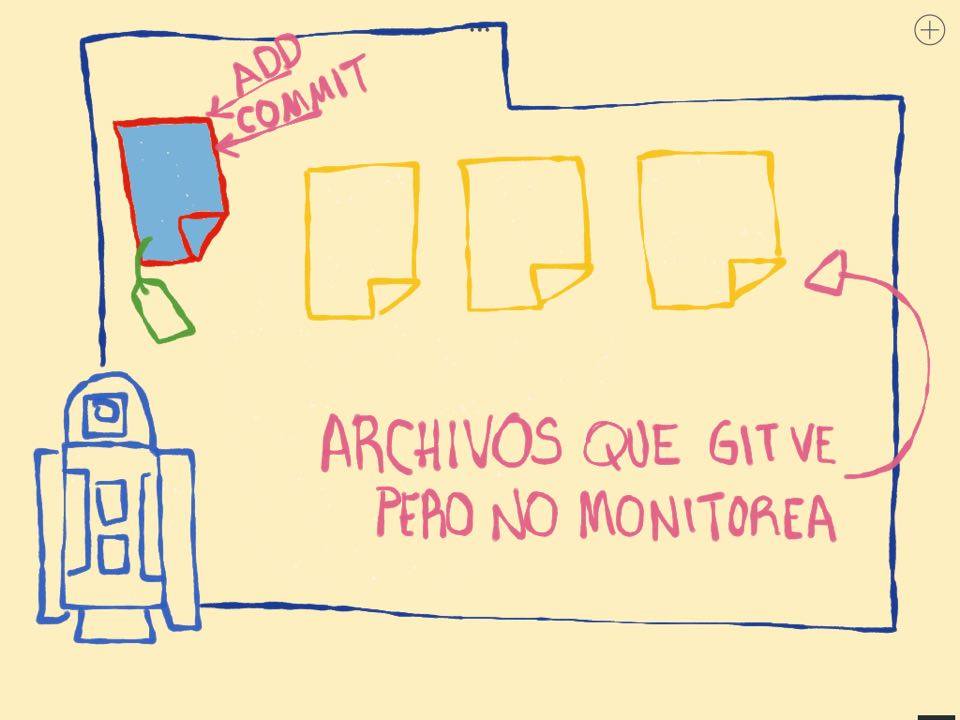 ADD
COMMIT
ARCHIVOS QUE GIT VE
PERO NO MONITOREA